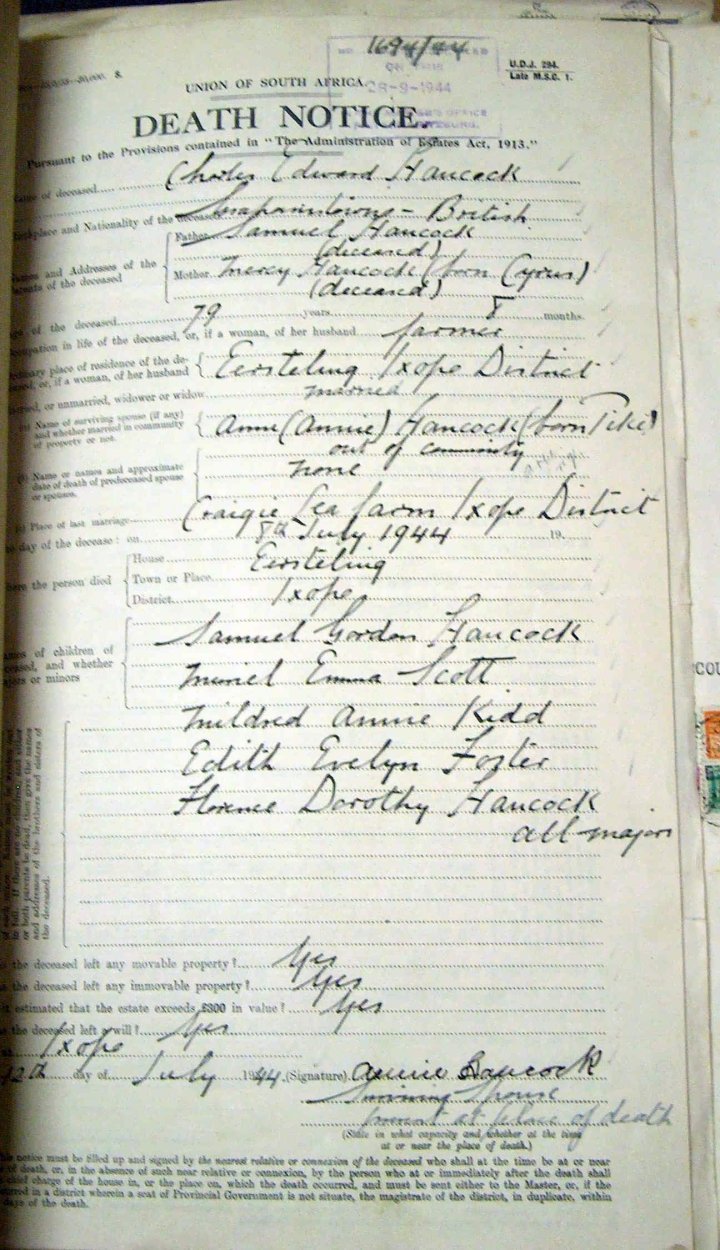 1694/44
28-9-1944
U.D.J. 294.
Late M.S.C. 1.
UNION OF SOUTH AFRICA.
DEATH NOTICE.
Pursuant to the Provisions contained in "The Administration of Estates Act, 1913."
Name of deceased Charles Edward Hancock
Birthplace and Nationality of the deceased - British
Father Samuel Hancock
(deceased)
Names and Addresses of the
parents of the deceased
Mother Mercy Hancock (born Cyrus)
(deceased)
of the deceased 79 years 8 months
occupation in life of the deceased, or, if a woman, of her husband farmer
ordinary place of residence of the de-
ceased, or, if a woman, of her husband
Eersteling Ixopo District
married, or unmarried, widower or widow married
(a) Name of surviving spouse (if any)
and whether married in community
of property or not.
Anne (Annie) Hancock (born Pike)
out of community
(b) Name or names and approximate
date of death of predeceased spouse
or spouses.
none
(c) Place of last marriage Craigie Lea farm Ixopo District
day of the decease: on 8th July 1944 19
where the person died
House Eersteling
Town or Place
District Ixopo
names of children of
deceased, and whether
majors or minors
Samuel Gordon Hancock
Muriel Emma Scott
Mildred Annie Kidd
Edith Evelyn Foster
Florence Dorothy Hancock
all majors
or both parents be dead, then give the names
and addresses of the brothers and sisters of
the deceased.
the deceased left any movable property? Yes
the deceased left any immovable property? Yes
estimated that the estate exceeds £300 in value? Yes
the deceased left a will? Yes
Ixopo
12th day of July 1944. (Signature) Annie Hancock
Surviving Spouse
present at place of death
(State in what capacity and whether at the time
at or near the place of death.)
this notice must be filled up and signed by the nearest relative or connexion of the deceased who shall at the time be at or near
of death, or, in the absence of such near relative or connexion, by the person who at or immediately after the death shall
chief charge of the house in, or the place on, which the death occurred, and must be sent either to the Master, or, if the
occurred in a district wherein a seat of Provincial Government is not situate, the magistrate of the district, in duplicate, within
days of the death.